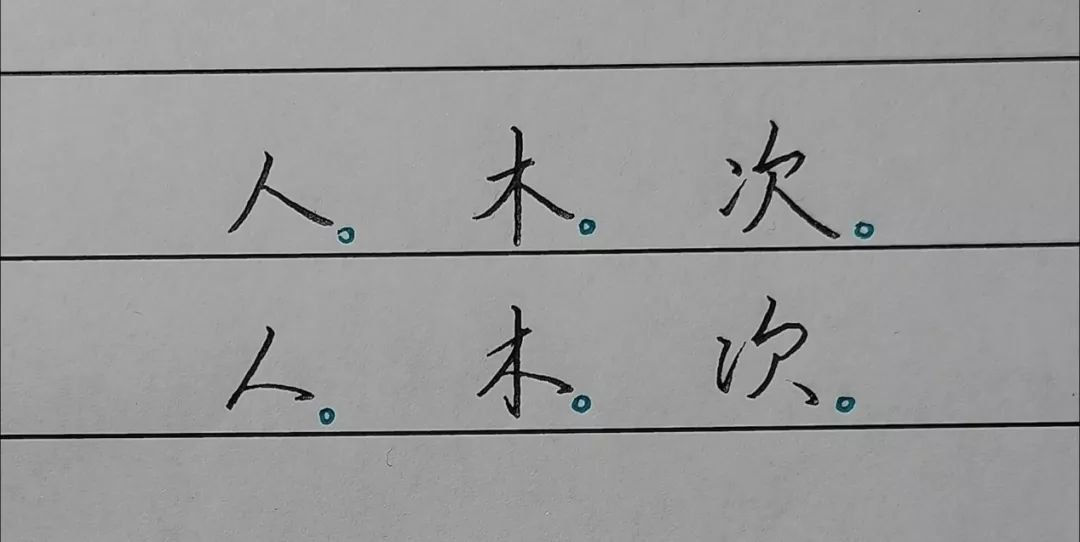 人。木。次。
人。木。次。